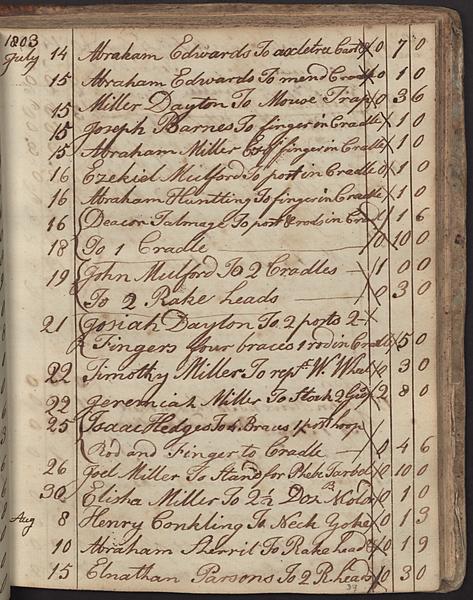 1803
July 14 Abraham Edwards To axeltree Cart 0 7 0
15 Abraham Edwards To mend Cradle 0 1 0
15 Miller Dayton To Mouse Trap 0 3 6
15 Joseph Barnes To finger in Cradle 0 1 0
15 Abraham Miller Esqr finger in Cradle 0 1 0
16 Ezekiel Mulford To post in Cradle 0 1 0
16 Abraham Huntting To finger in Cradle 0 1 0
16 Deacon Talmage To post & rods in Crad 0 1 6
18 To 1 Cradle 0 10 0
19 John Mulford To 2 Cradles 1 0 0
To 2 Rake heads 0 3 0
21 Josiah Dayton To 2 posts 2
Fingers four braces 1 rod in Cradle 5 0
22 Timothy Miller To rept W. Wheal 0 3 0
22 Jeremiah Miller To Stock 2 8 0
25 Isaac Hedges To 4 Braces 1 post
Rod and Finger to Cradle 0 4 6
26 Joel Miller To Stand for Phebe 0 10 0
30 Elisha Miller To 2½ Doz 0 1 0
Aug 8 Henry Conkling To Neck Yoke 0 1 3
10 Abraham Sherril To Rake head 0 1 9
15 Elnathan Parsons To 2 R. heads 0 3 0
39